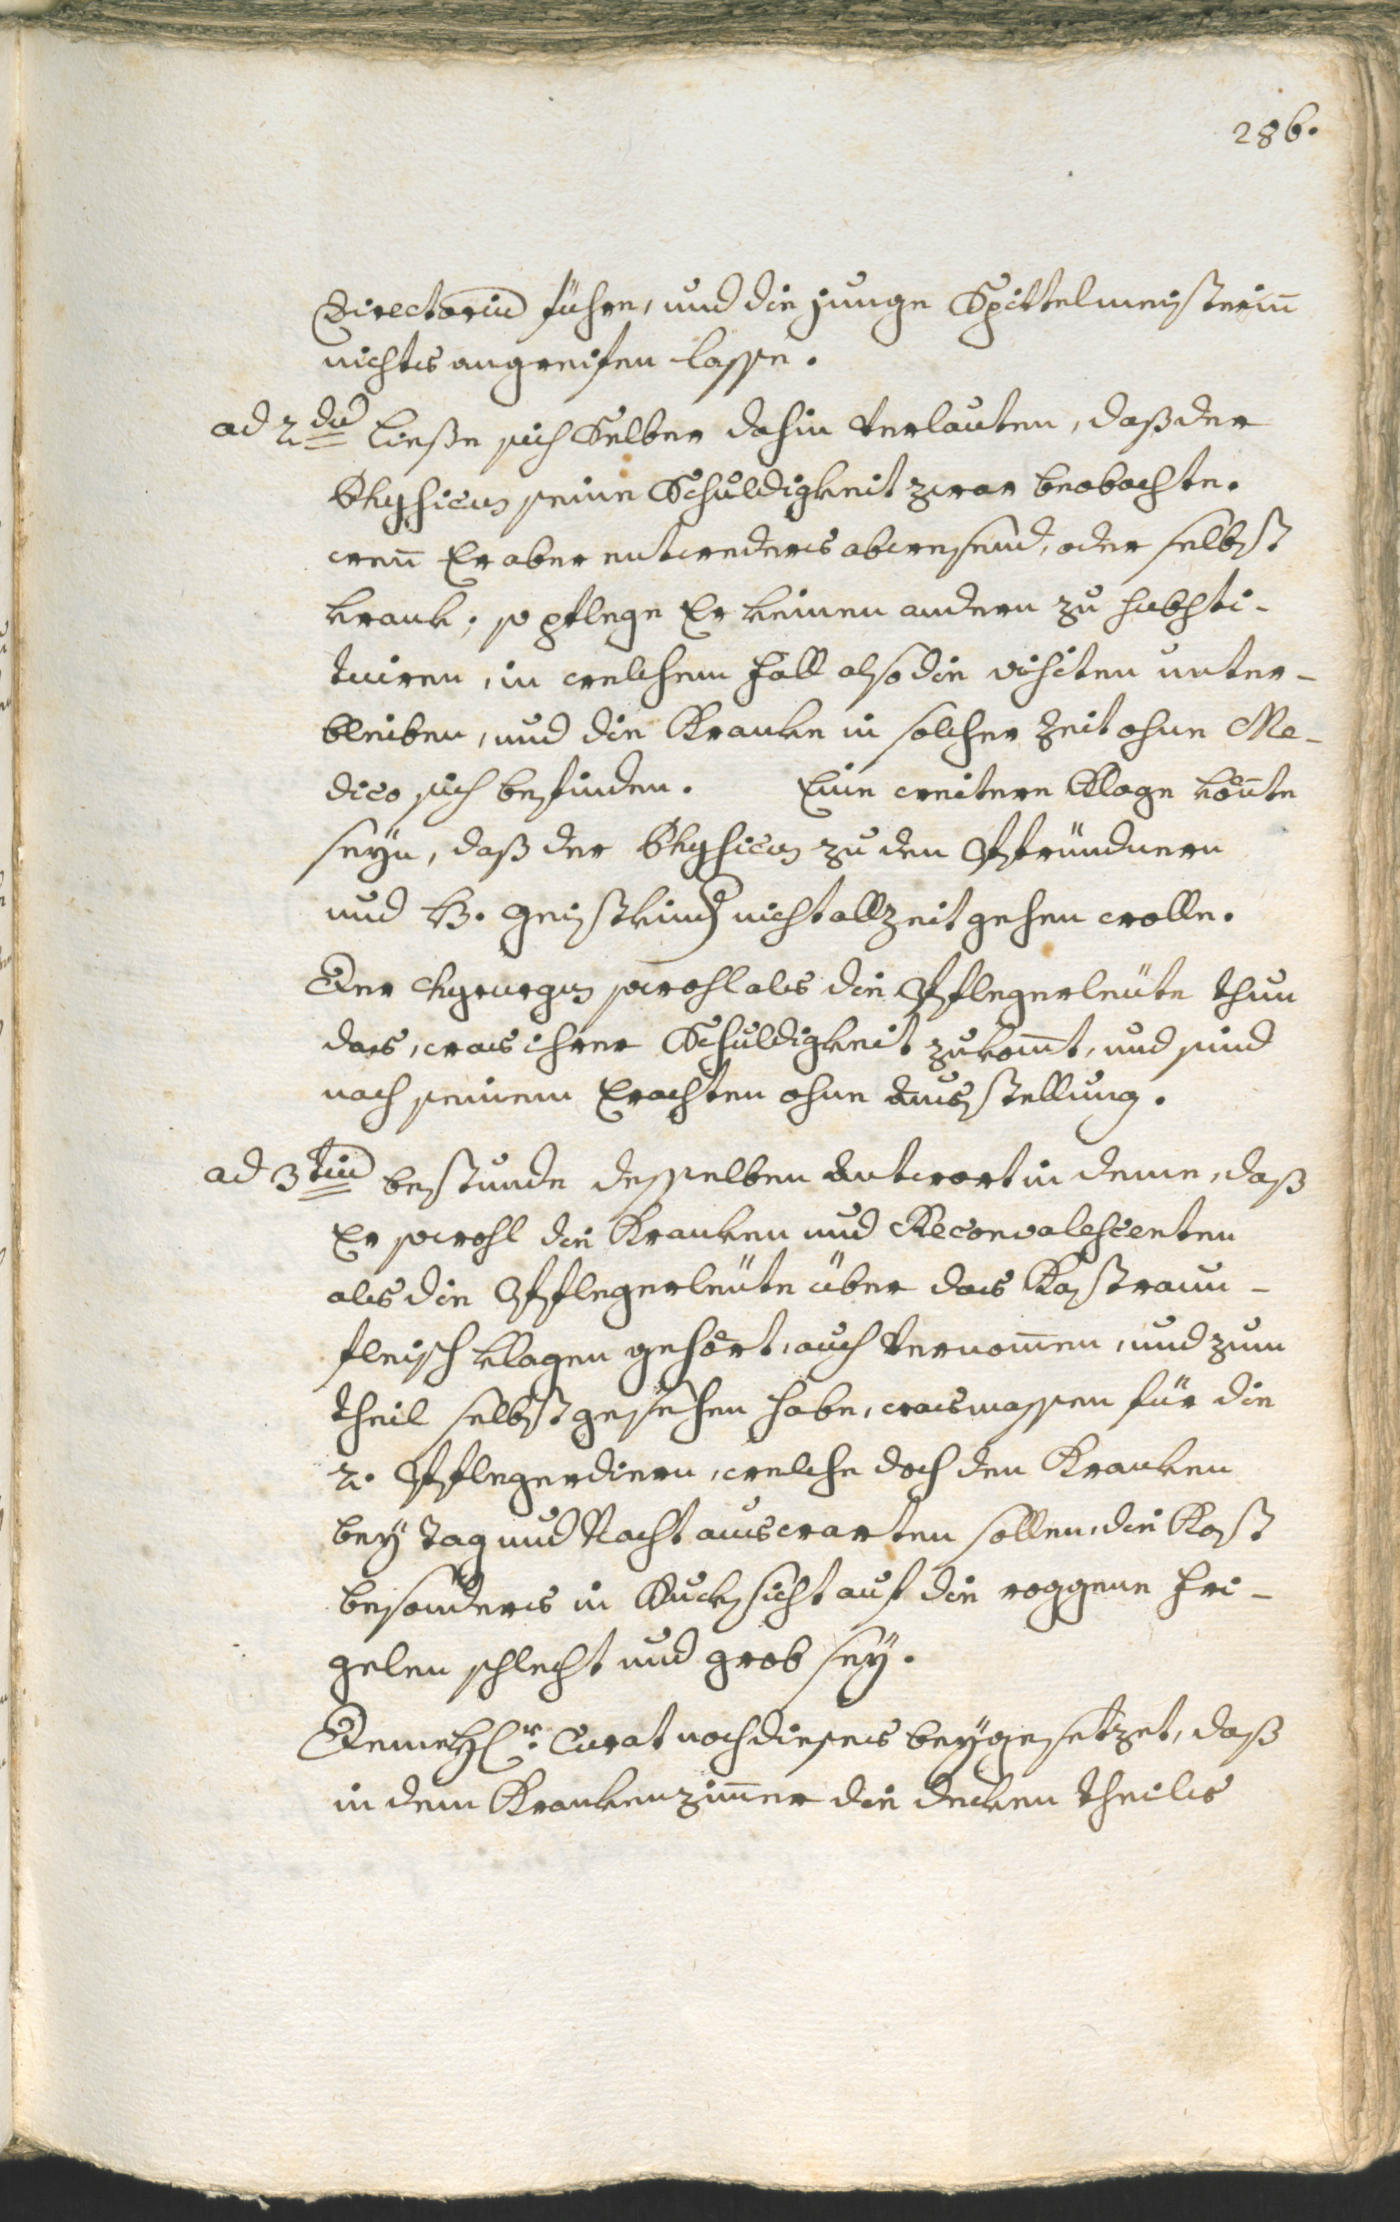 286.
Directorium führe, und die junge Spittelmeisterin̄
nichts angreifen lasse.
ad 2dū liesse sich Selber dahin verlauten, daß der
Physicus seine Schuldigkeit zwar beobachte.
wen̄ Er aber entweders abwesend, oder selbst
krank; so pflege Er keinen andern zu substi-
tuiren, in welchem fall also die visiten unter-
bleiben, und die Kranke in solcher Zeit ohne Me-
dico sich befinden. Eine weitere Klage kön̄te
seÿn, daß der Physicus zu den Pfründnern
und H. Geistkind nicht allzeit gehen wolle.
Der Chyrurgus sowohl als die Pflegerleüte thun
das, was ihrer Schuldigkeit zukom̄t, und sind
nach seinem Erachten ohne Ausstellung.
ad 3tiū bestunde desselben Antwort in deme, daß
Er sowohl die Kranken und Reconvalescenten
als die Pflegerleüte über das Kastraun-
fleisch klagen gehört, auch vernom̄en, und zum
theil selbst gesehen habe, wasmassen für die
2. Pflegerdiern, welche doch den Kranken
beÿ Tag und Nacht auswarten sollen, die Kost
besonders in Rucksicht auf die roggene fri-
gelen schlecht und grob seÿ.
Deme Hr. Curat noch dieses beÿgesetzet, daß
in dem Krankenzim̄er die decken theils